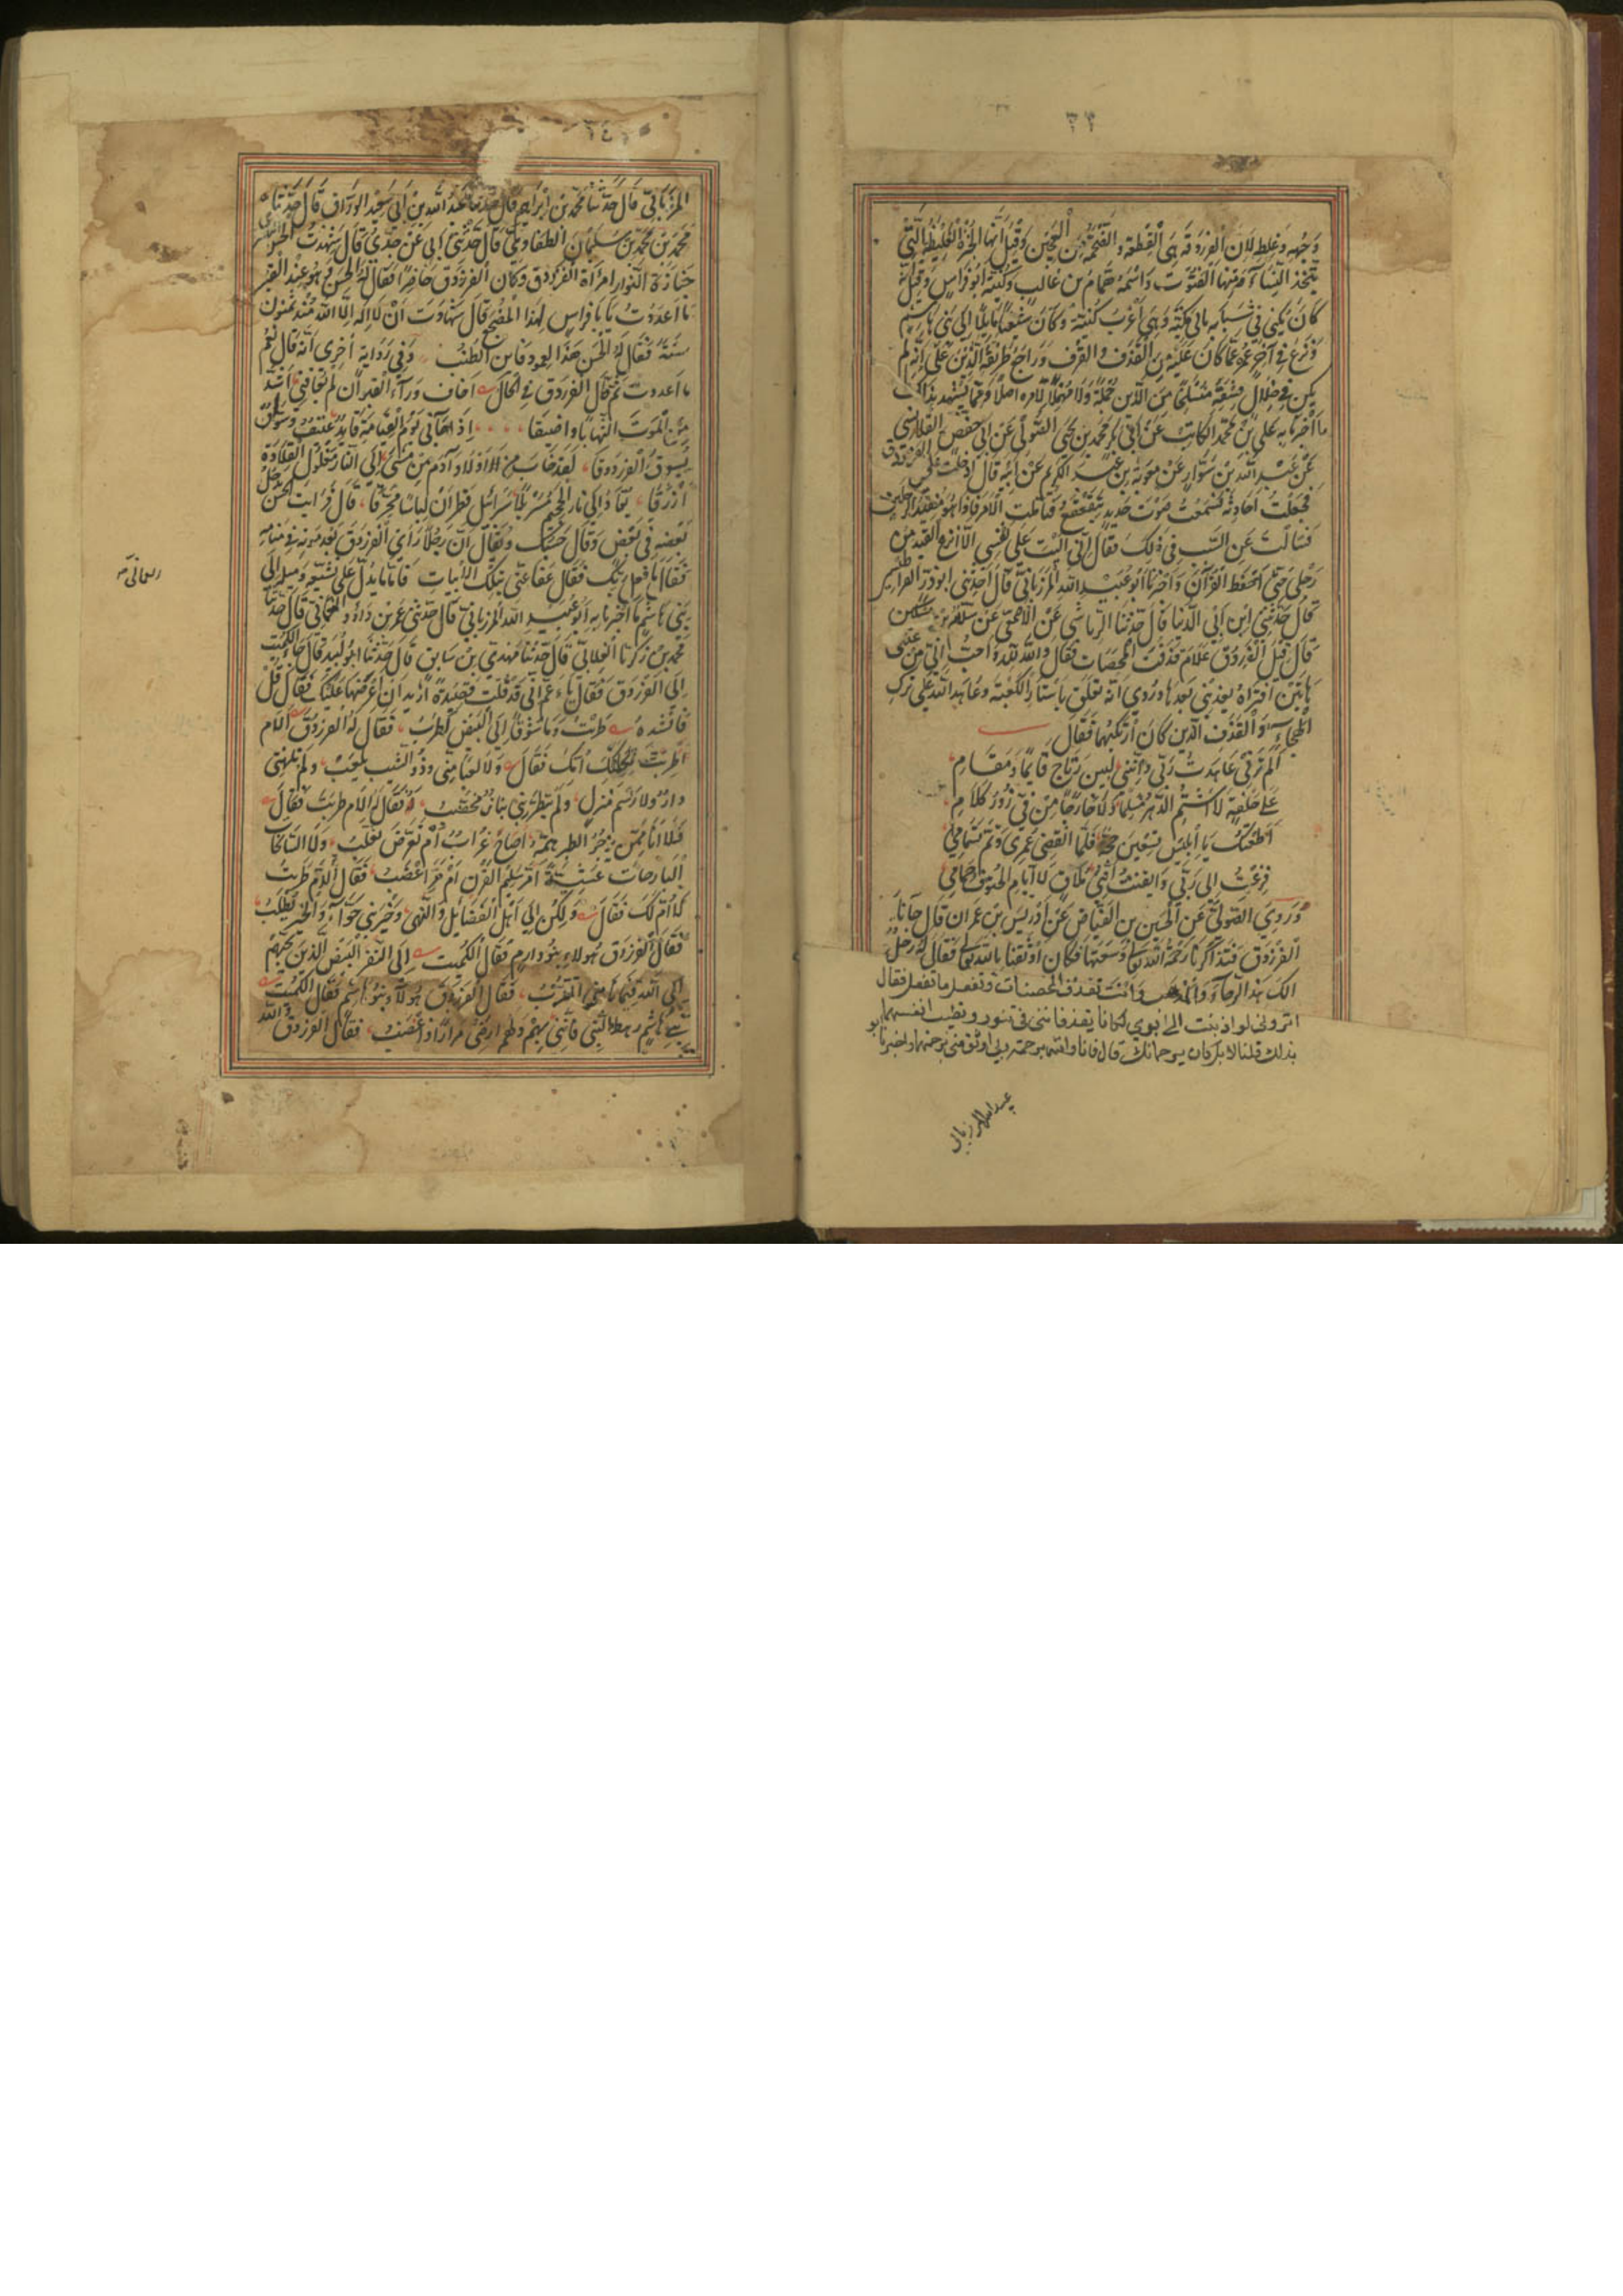 ٣٤
وَجْهه وَغِلَظِهِ لِاَن الفرزدقة هِىَ القِطعَة الضَّخمَة مِن العَجِين وَقِيلَ اَنّهَا الخُبزَة الغَلِيظَة الَّتِى
يَتّخذ النِّسَاء مِنهَا الفَتُوت وَاسْمُهُ هَمَّام بن غَالِب وَكُنيَتُه ابُو فِرَاسٍ وَقِيلَ اِنّهُ
كَانَ يُكَنّى فِى شَبَابِه بِابِى مَكيّة وَهِىَ اَغْرَبُ كُنيَتِه وَكَانَ شِيعيًّا مَايلًا اِلَى بَنِى هَاشِم
وَنَزَعَ فِى آخِر عُمره عَمّا كَانَ عَلَيهِ مِنَ القَذف وَالفِسق وَرَاجَعَ طَرِيقَة الدّين عَلَى اَنّه لَم
يَكُن فِى خِلَال فِسقِهِ مُنسَلِخًا مِنَ الدّين جُملَةً وَلَا مُهمِلًا لِاَمرِه اصلًا وَمِمّا يَشهَد بِذلِكَ
مَا اَخبَرَنا بِه عَلى بن مُحمّد الكَاتِب عَن اَبِى بَكر مُحمّد بن يَحيَى الصُّولِى عَن اَبِى حَفص الفلاس
عَن عَبد اللهِ بن سَوَّار عَن مُعوِيَة بن عَبد الكَرِيم عَن اَبِيه قَالَ دَخَلتُ عَلَى الفَرَزدَق
فَجَعَلتُ اُحَادِثُه فَسَمِعتُ صَوت حَدِيد يَتَقَعقَعُ فَتَامّلت الاَمر فَاِذَا هُوَ مُقَيَّد الرِّجلَين
فَسَاَلتُه عَنِ السَّبَب فِى ذلِكَ فَقَالَ اِنّى آلَيتُ عَلَى نَفسِى اَلّا اَنزِعَ القَيد مِن
رِجلِى حَتّى اَحفَظ القُرآنَ وَاَخبَرَنا اَبُو عُبَيدِ اللهِ المَرزُبَانِى قَالَ اَخبَرَنِى ابُو ذَرّ القَرَاطِيسِى
قَالَ حَدّثَنِى ابن اَبِى الدُّنيَا قَالَ حَدّثَنَا الرِّيَاشِى عَن الاَصمَعِى عَن سَلّام بن مِسكِين
قَالَ قِيلَ للفَرَزدَق عَلَامَ تَقذِفُ المُحصَنَات فَقَالَ وَاللهِ للهُ اَحَبُّ اِلَىّ مِن عَينَىّ
هَاتَين اَفتَرَاهُ يُعَذِّبُنِى بَعدَهَا وَرُوِى اَنّه تَعَلّقَ بِاَستَار الكَعبَة وَعَاهَد اللهَ عَلَى تَرك
الهِجَاءِ وَالقَذف الّذَين كَانَ ارتَكَبَهُمَا فَقَالَ
اَلَم تَرَنِى عَاهَدتُ رَبِّى وَاِنّنِى لَبَينَ رِتَاج قَايِمًا وَمَقَام
عَلَى حَلفَةٍ لَا اَشتِمُ الدَّهرَ مُسلِمًا وَلَا خَارِجًا مِن فِىّ زُورُ كَلَام
اَطَعتُك يَا اِبلِيس تِسعِينَ حجّة فَلَمّا انقَضَى عُمرِى وَتَمّ تَمَامِى
فزعتُ اِلَى رَبِّى وَاَيقَنتُ اَنّنِى مُلَاقٍ لِاَيّامِ الحُتُوفِ حِمَامِى
وَرَوَى الصُّولِى عَن الحُسَين بن الفَيّاض عَن اِدرِيس بن عِمرَان قَالَ جَاءَنَا
الفَرَزدَق فَتَذَاكَرنَا رَحمَة الله تعَالى وَسَعَتَهَا فَكَانَ اَوثَقَنَا بِاللهِ تعَالى فَقَالَ لَهُ رَجُلٌ
الَكَ هَذَا الرّجَاءُ وَالمَذهَب وَاَنتَ تَقذف المحصنات وتفعل ما تفعل فقال
اترونى لو اذنبت الى ابوى لكانا يقذفاننى فى تنور وتطيب انفسهما
بذلك قلنا لا بل كان يرحمانك قال فانا والله برحمة ربى اوثق منى برحمتهما واخبرنا ابو
عبيد الله المرزبانى
المَرزُبَانِى قَالَ حَدّثَنَا مُحمّد بن اِبرَاهِيم قَالَ حَدّثَنَا عَبدُ اللهِ بن اَبِى سَعِيد الوَرّاق قَالَ حَدّثَنَا
مُحمّد بن مُحمّد بن سُلَيمَان الطُّفَاوِى قَالَ حَدّثَنِى اَبِى عَن جَدّى قَالَ شَهِدتُ الحَسَن البصرى فى
جَنَازَة النَّوَار امرَأة الفَرَزدَق وَكَانَ الفَرَزدَق حَاضِرًا فَقَالَ لَهُ الحَسَن وَهُوَ عِندَ القَبر
مَا اَعدَدتُ يَا بَا فِرَاسٍ لِهَذَا المَضجَع قَالَ شَهَادَة اَن لَا اِلَه اِلّا الله مُنذ ثَمَنُون
سَنَة فَقَالَ لَهُ الحَسَن هَذَا العمود فَاين الطُّنُب وَفِى رِوَاية اُخرَى اَنّه قَالَ نِعم
مَا اعددت ثمّ قَالَ الفَرَزدَق فِى الحَال اَخَاف وَرَاءَ القَبرِ اِن لَم يُعَافِنِى اَشَدَّ
مِنَ المَوتِ التِهَابًا وَاضيَقَا اِذَا جَاءَنِى يَومَ القِيَامَةِ قَايِدٌ عَنِيفٌ وَسَوّاقٌ
يَسُوقُ الفَرَزدَقَا لَقَد خَابَ مِن اَولَادِ آدَمَ مَن مَشَى اِلَى النَّارِ مَغلُولَ القِلَادَة
اَزرَقَا يُقَادُ اِلَى نَارِ الجَحِيمِ مُسَربَلًا سَرَابِيلَ قَطِرَانٍ لِبَاسًا مُحَرَّقَا قَالَ فَرَاَيتُ الحَسَن يدخل
بَعضه فِى بَعض وَقَالَ حَسبُك وَيُقَالُ اَنّ رَجُلًا رَاَى الفَرَزدَق بَعد مَوتِه فِى مَنَامِه
فَقَالَ مَا فَعَلَ رَبُّك فَقَالَ عَفَا عَنّى بِتِلكَ الاَبيَات فَامّا مَا يَدُلّ عَلَى تَشَيّعِه وَمَيلِه اِلَى
بَنِى هَاشِم مَا اَخبَرَنا بِه اَبُو عُبَيدِ اللهِ المَرزُبَانِى قَالَ حَدّثَنِى عُمَر بن دَاوُد العُمَانِى قَالَ حَدّثَنَا
العمانى
مُحمّد بن زَكَرِيّا الغَلَابِى قَالَ حَدّثَنَا مَهدِى بن سَابِق قَالَ حَدّثَنَا اَبُو لَبِيد قَالَ جَاءَ الكُمَيت
اِلَى الفَرَزدَق فَقَالَ يَا عَمّ اِنّى قَد قُلتُ قَصِيدَةً اُرِيد اَن اَعرِضَهَا عَلَيك فَقَالَ قُل
فَاَنشَدَهُ طَرِبتُ وَمَا شَوقًا اِلَى البِيضِ اَطرَبُ فَقَالَ لَهُ الفَرَزدَق اِلَامَ
طَرِبتَ ثَكِلَتكَ اُمُّكَ فَقَالَ وَلَا لَعِبًا مِنّى وَذُو الشَّيبِ يَلعَبُ وَلَم تُلهِنِى
دَارٌ وَلَا رَسمُ مَنزِلٍ وَلَم يَتَطَرَّبنِى بَنَانٌ مُخَضَّبُ فَقَالَ لَهُ اِلَامَ طَرِبتَ فَقَالَ
وَلَا اَنَا مِمَّن يَزجُرُ الطَّيرَ هَمُّهُ اَصَاحَ غُرَابٌ اَم تَعَرَّضَ ثَعلَبُ وَلَا السَّانِحَات
البَارِحَات عَشِيَّةً اَمَرَّ سَلِيمُ القَرنِ اَم مَرَّ اَعضَبُ فَقَالَ اِلَامَ طَرِبتَ
لَا اُمّ لَكَ فَقَالَ وَلَكِن اِلَى اَهلِ الفَضَايِلِ وَالنُّهَى وَخَيرِ بَنِى حَوَّاءَ وَالخَيرُ يُطلَبُ
فَقَالَ الفَرَزدَق هَولَاءِ بَنُو دَارِم فَقَالَ الكُمَيت اِلَى النَّفَرِ البِيضِ الَّذِينَ بِحُبِّهِم
اِلَى اللهِ فِيمَا نَابَنِى اَتَقَرَّبُ فَقَالَ الفَرَزدَق هَولَاءِ بَنُو هَاشِم فَقَالَ الكُمَيت
بَنِى هَاشِمٍ رَهطِ النَّبِىِّ فَاِنَّنِى بِهِم وَلَهُم اَرضَى مِرَارًا وَاَغضَبُ فَقَالَ الفَرَزدَق وَالله